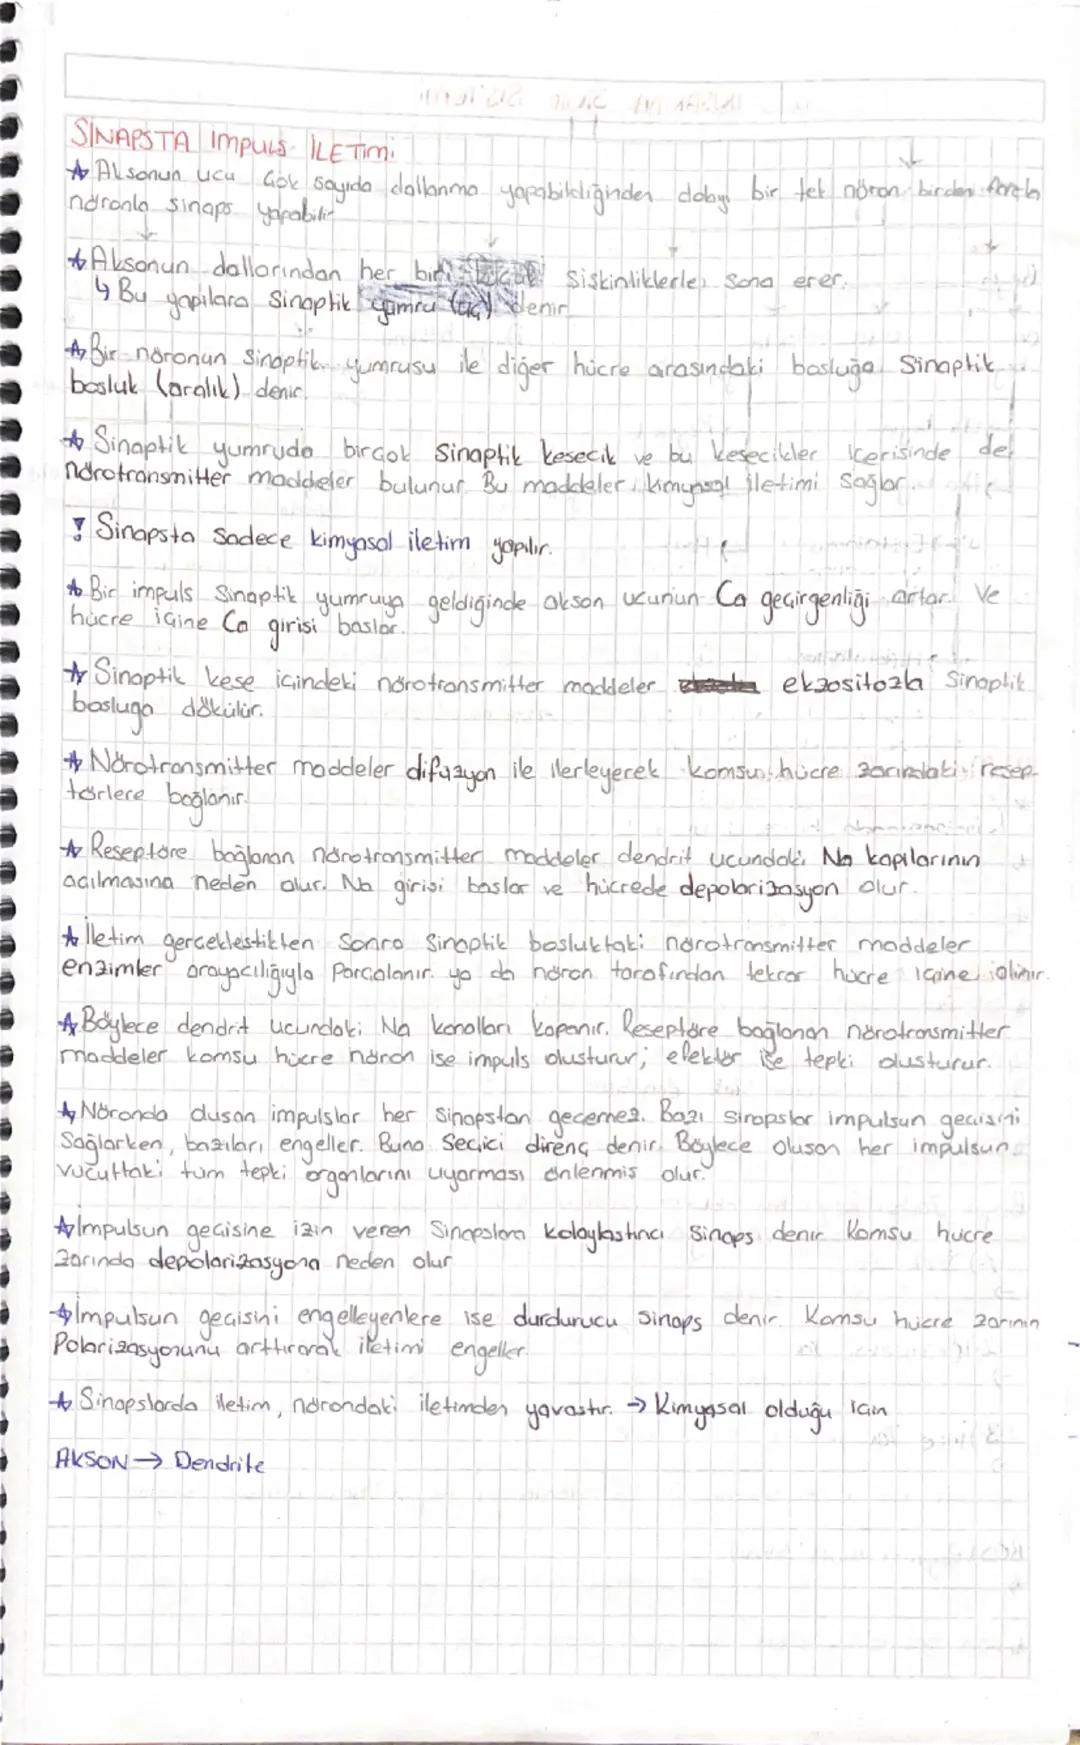 SİNAPSTA İmpuls İLETİMİ
☆ Aksonun ucu çok sayıda dallanma yapabildiğinden dolayı bir tek nöron birden fazla
nöronla sinaps yapabilir
☆ Aksonun dallarından her biri küçük şişkinliklerle sona erer.
↳ Bu yapılara Sinaptik yumru (uç) denir
☆ Bir nöronun sinaptik yumrusu ile diğer hücre arasındaki boşluğa Sinaptik
boşluk (aralık) denir.
☆ Sinaptik yumruda birçok Sinaptik kesecik ve bu kesecikler içerisinde de
nörotransmitter maddeler bulunur. Bu maddeler kimyasal iletimi Sağlar.
! Sinapsta sadece kimyasal iletim yapılır.
☆ Bir impuls Sinaptik yumruya geldiğinde akson ucunun Ca geçirgenliği artar. Ve
hücre içine Ca girişi başlar.
☆ Sinaptik kese içindeki nörotransmitter maddeler ekzositozla Sinaptik
boşluğa dökülür.
☆ Nörotransmitter maddeler difüzyon ile ilerleyerek komşu hücre zarındaki resep-
törlere bağlanır.
☆ Reseptöre bağlanan nörotransmitter maddeler dendrit ucundaki Na kapılarının
açılmasına neden olur. Na girişi başlar ve hücrede depolarizasyon olur.
☆ İletim gerçekleştikten sonra Sinaptik boşluktaki nörotransmitter maddeler
enzimler aracılığıyla parçalanır. ya da nöron tarafından tekrar hücre içine alınır.
☆ Böylece dendrit ucundaki Na kanalları kapanır. Reseptöre bağlanan nörotransmitter
maddeler komşu hücre nöron ise impuls oluşturur; efektör ise tepki oluşturur.
☆ Nöronda oluşan impulslar her sinapstan geçemez. Bazı sinapslar impulsun geçişini
Sağlarken, bazıları engeller. Buna Seçici direnç denir. Böylece oluşan her impulsun
vücuttaki tüm tepki organlarını uyarması önlenmiş olur.
☆ İmpulsun geçişine izin veren Sinapslara kolaylaştırıcı Sinaps denir Komşu hücre
zarında depolarizasyona neden olur
☆ İmpulsun geçişini engelleyenlere ise durdurucu sinaps denir. Komşu hücre zarının
Polarizasyonunu arttırarak iletimi engeller.
☆ Sinapslarda iletim, nörondaki iletimden yavaştır. → Kimyasal olduğu için
AKSON → Dendrite